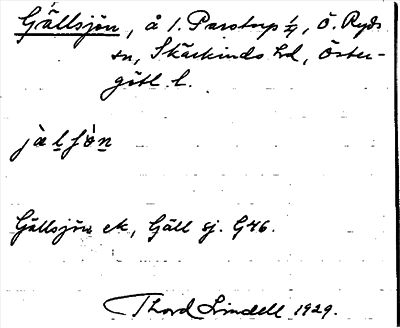 Gällsjön, å 1. Parstorp 1/4, Ö. Ryds
sn, Skärkinds hd, Öster-
götl. l.
jàlʃòn
Gällsjön ek, Gäll sj. G46.
Thord Lindell 1929.